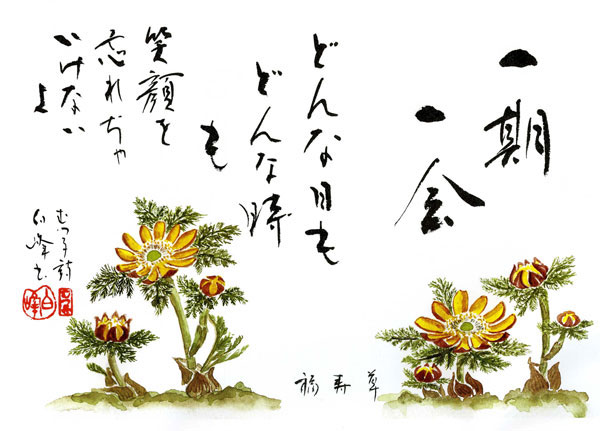 一期
一会
どんな日も
どんな時
も
笑顔を
忘れちゃ
いけない
よ
むつ子詩
白峰書
福寿草